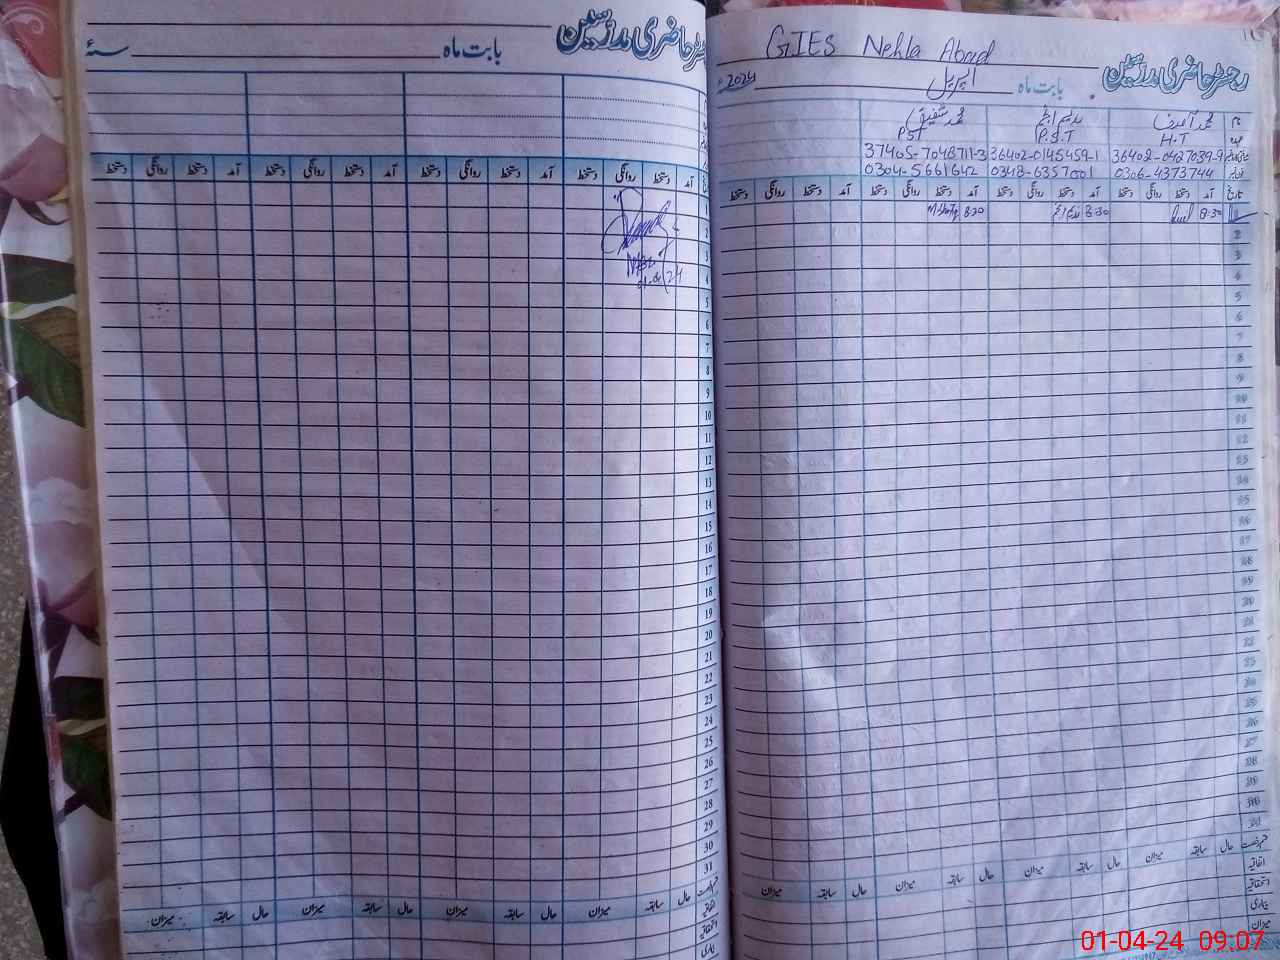 GIES Nehla Abad
رجسٹر حاضری مدرسین
بابت ماہ اپریل 2024ء
نام محمد آصف ندیم انجم محمد شفیق
عہدہ H.T P.S.T PST
36402-0427039-9 36402-0145459-1 37405-7048711-3
0306-4373744 0348-6357001 0304-5661642
تاریخ آمد دستخط روانگی دستخط آمد دستخط روانگی دستخط آمد دستخط روانگی دستخط آمد دستخط روانگی دستخط
1 8:30 8:30 8:30
2
3
4
5
6
7
8
9
10
11
12
13
14
15
16
17
18
19
20
21
22
23
24
25
26
27
28
29
30
31
حال سابقہ میزان حال سابقہ میزان حال سابقہ میزان حال سابقہ میزان
اتفاقیہ
استحقاقیہ
بیماری
میزان
رجسٹر حاضری مدرسین
بابت ماہ سنہ
آمد دستخط روانگی دستخط آمد دستخط روانگی دستخط آمد دستخط روانگی دستخط آمد دستخط روانگی دستخط
1
2
3
4
5
6
7
8
9
10
11
12
13
14
15
16
17
18
19
20
21
22
23
24
25
26
27
28
29
30
31
حال سابقہ میزان حال سابقہ میزان حال سابقہ میزان حال سابقہ میزان
اتفاقیہ
استحقاقیہ
بیماری
01-04-24 09:07